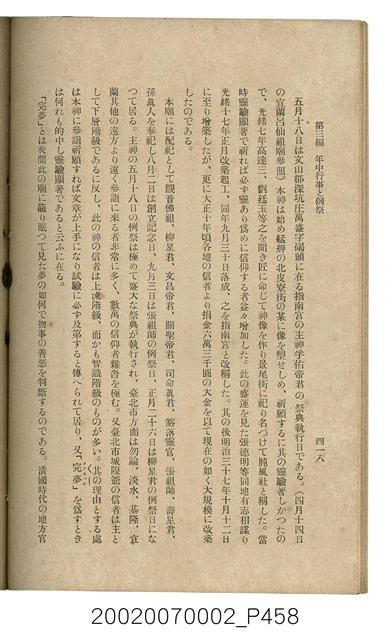 第三編　年中行事と例祭
四一八
五月十八日は文山郡深坑庄萬盛字碣頭に在る指南宮の主神孚佑帝君の祭典執行日である。(四月十四日
の宜蘭呂仙祖廟參照)本神は始め艋舺の北皮寮街の某に像を塑せしめ、祈願するに其の靈驗著しかつたの
で、光緒七年高達三、劉廷玉等之を聞き匠に命じて神像を作り景尾街に祀り名づけて肫風社と稱した。當
時靈驗顯著で祈れば必ず靈あり爲めに信仰する者益々增加した。此の盛運を見た張德明等同地有志相謀り
光緒十七年正月改築起工、同年九月三十日落成、之を指南宮と改稱した。其の後明治三十七年十月十二日
に至り增築したが、更に大正十年頃各地の信者より捐金六萬三千圓の大金を以て現在の如く大規模に改築
したのである。
本廟には配祀として觀音佛祖、柳星君、文昌帝君、關聖帝君、司命眞君、豁落靈官、張祖師、壽星君、
孫眞人を奉祀し八月二日は創立記念日、九月三日は張祖師の例祭日、正月二十六日は柳星君の例祭日にな
つて居る。主神の五月十八日の例祭は極めて盛大な祭典が執行され、臺北市方面は勿論、淡水、基隆、宜
蘭其他の遠方より遠く參詣に來る者非常に多く、數萬の信仰者雜沓を極む。又臺北市城隍爺の信者は主と
して下層階級であるに反し、此の神の信者は上流階級、而かも智識階級のものが多い。其の理由とする處
は本神に參詣祈願すれば文章が上手になり試驗に必ず及第すると傳へられて居り、又「完夢」を爲すとき
は何れも的中し靈驗顯著であると云ふに在る。
「完夢」とは夜間此の廟に籠り眠つて見た夢の如何で物事の善惡を判斷するのである。淸國時代の地方官
20020070002_P458